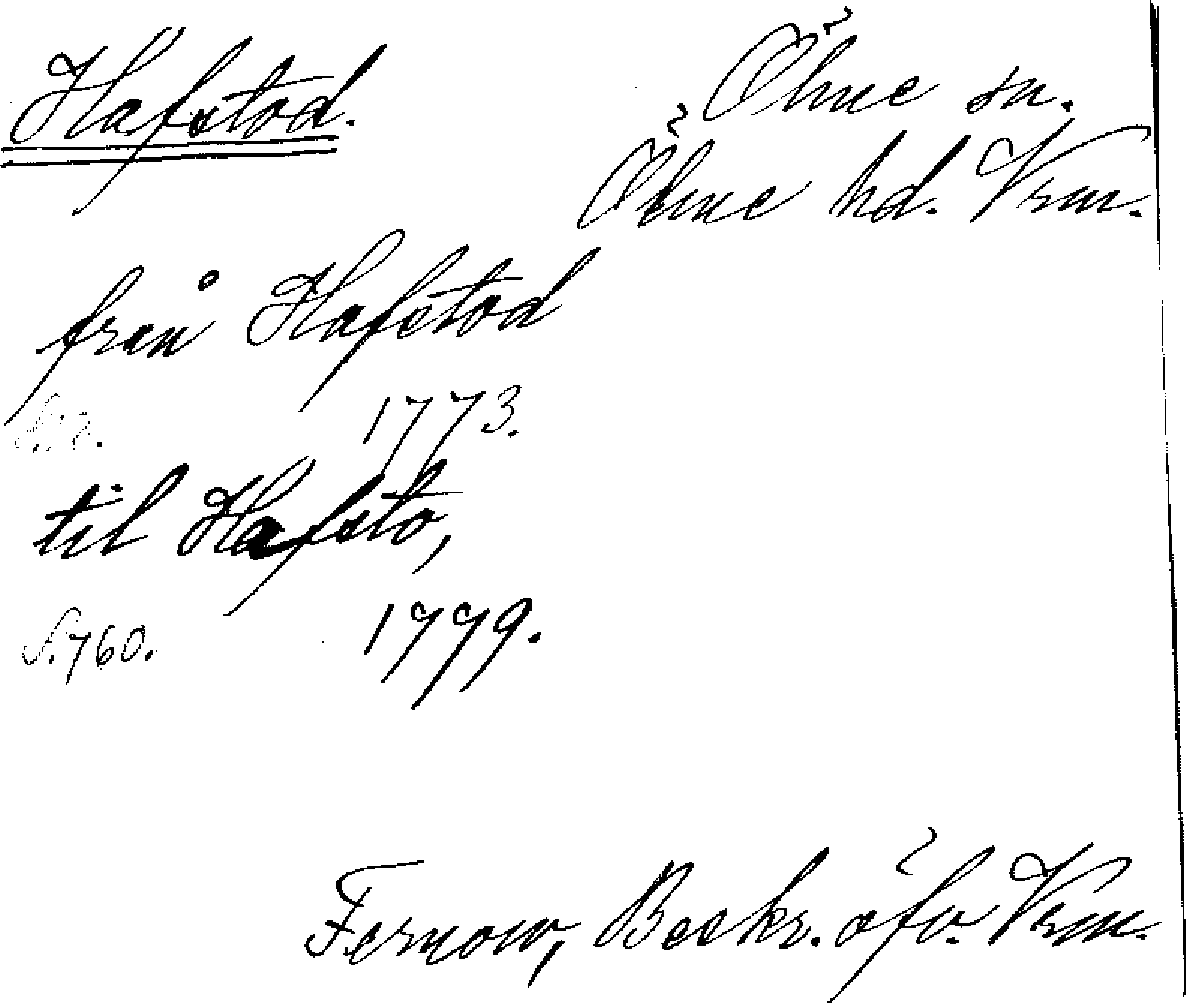 Hafstod.
Ölme sn.
Ölme hd. Vrm.
från Hafstod
1773.
til Hafsto,
S. 760. 1779.
Fernow, Beskr. öfv. Vrm.